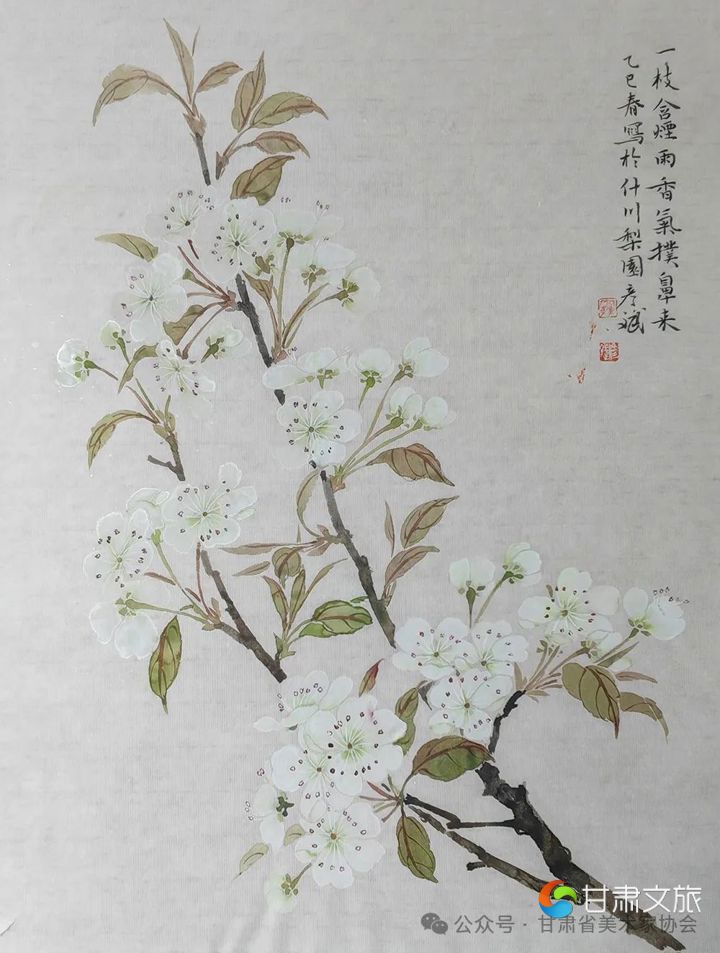 一枝含煙雨香氣撲鼻来
乙巳春寫於什川梨園彦斌
甘肃文旅
公众号·甘肃省美术家协会